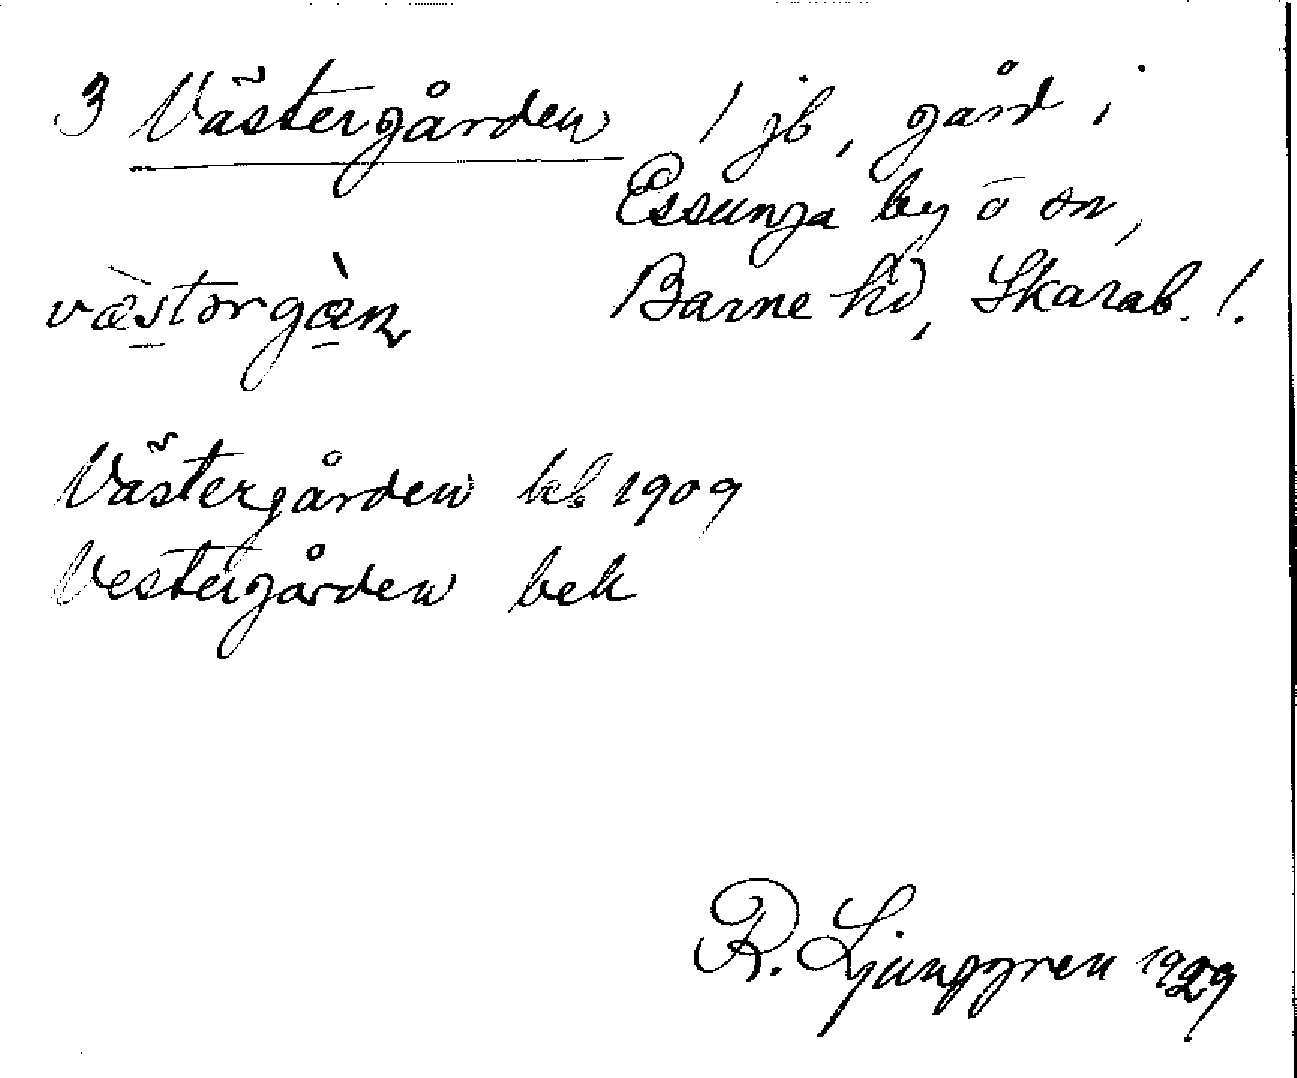 3 Västergården 1 jb, gård i
Essunga by o sn,
væstərgàn Barne hd, Skarab. l.
Västergården kb 1909
Vestergården bek
R. Ljunggren 1929